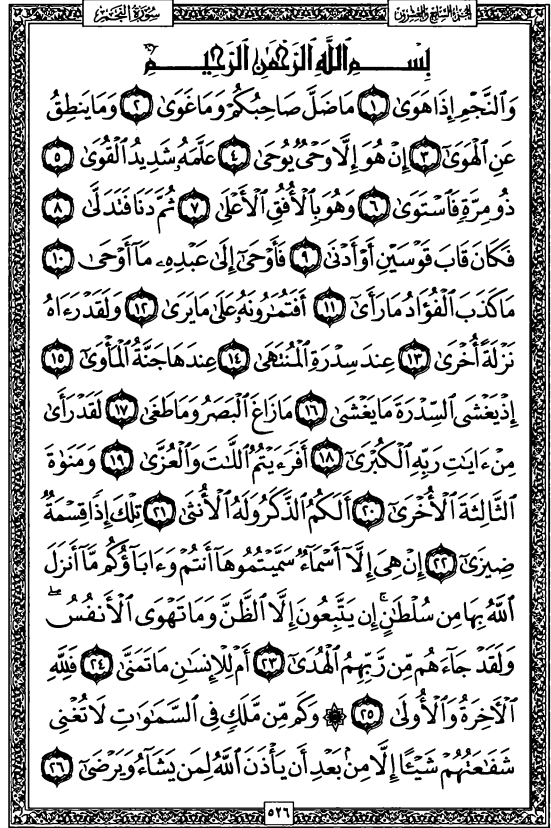 سُورَةُ النَّجْمِ الجُزْءُ السَّابِعُ وَالعِشْرُونَ
بِسْمِ اللَّهِ الرَّحْمَٰنِ الرَّحِيمِ
وَالنَّجْمِ إِذَا هَوَىٰ ١ مَا ضَلَّ صَاحِبُكُمْ وَمَا غَوَىٰ ٢ وَمَا يَنطِقُ
عَنِ الْهَوَىٰ ٣ إِنْ هُوَ إِلَّا وَحْيٌ يُوحَىٰ ٤ عَلَّمَهُ شَدِيدُ الْقُوَىٰ ٥
ذُو مِرَّةٍ فَاسْتَوَىٰ ٦ وَهُوَ بِالْأُفُقِ الْأَعْلَىٰ ٧ ثُمَّ دَنَا فَتَدَلَّىٰ ٨
فَكَانَ قَابَ قَوْسَيْنِ أَوْ أَدْنَىٰ ٩ فَأَوْحَىٰ إِلَىٰ عَبْدِهِ مَا أَوْحَىٰ ١٠
مَا كَذَبَ الْفُؤَادُ مَا رَأَىٰ ١١ أَفَتُمَارُونَهُ عَلَىٰ مَا يَرَىٰ ١٢ وَلَقَدْ رَءَاهُ
نَزْلَةً أُخْرَىٰ ١٣ عِندَ سِدْرَةِ الْمُنتَهَىٰ ١٤ عِندَهَا جَنَّةُ الْمَأْوَىٰ ١٥
إِذْ يَغْشَى السِّدْرَةَ مَا يَغْشَىٰ ١٦ مَا زَاغَ الْبَصَرُ وَمَا طَغَىٰ ١٧ لَقَدْ رَأَىٰ
مِنْ ءَايَاتِ رَبِّهِ الْكُبْرَىٰ ١٨ أَفَرَءَيْتُمُ اللَّاتَ وَالْعُزَّىٰ ١٩ وَمَنَوٰةَ
الثَّالِثَةَ الْأُخْرَىٰ ٢٠ أَلَكُمُ الذَّكَرُ وَلَهُ الْأُنثَىٰ ٢١ تِلْكَ إِذًا قِسْمَةٌ
ضِيزَىٰ ٢٢ إِنْ هِيَ إِلَّا أَسْمَاءٌ سَمَّيْتُمُوهَا أَنتُمْ وَءَابَاؤُكُم مَّا أَنزَلَ
اللَّهُ بِهَا مِن سُلْطَانٍ ۚ إِن يَتَّبِعُونَ إِلَّا الظَّنَّ وَمَا تَهْوَى الْأَنفُسُ ۖ
وَلَقَدْ جَاءَهُم مِّن رَّبِّهِمُ الْهُدَىٰ ٢٣ أَمْ لِلْإِنسَانِ مَا تَمَنَّىٰ ٢٤ فَلِلَّهِ
الْآخِرَةُ وَالْأُولَىٰ ٢٥ ۞ وَكَم مِّن مَّلَكٍ فِي السَّمَاوَاتِ لَا تُغْنِي
شَفَاعَتُهُمْ شَيْئًا إِلَّا مِن بَعْدِ أَن يَأْذَنَ اللَّهُ لِمَن يَشَاءُ وَيَرْضَىٰ ٢٦
٥٢٦